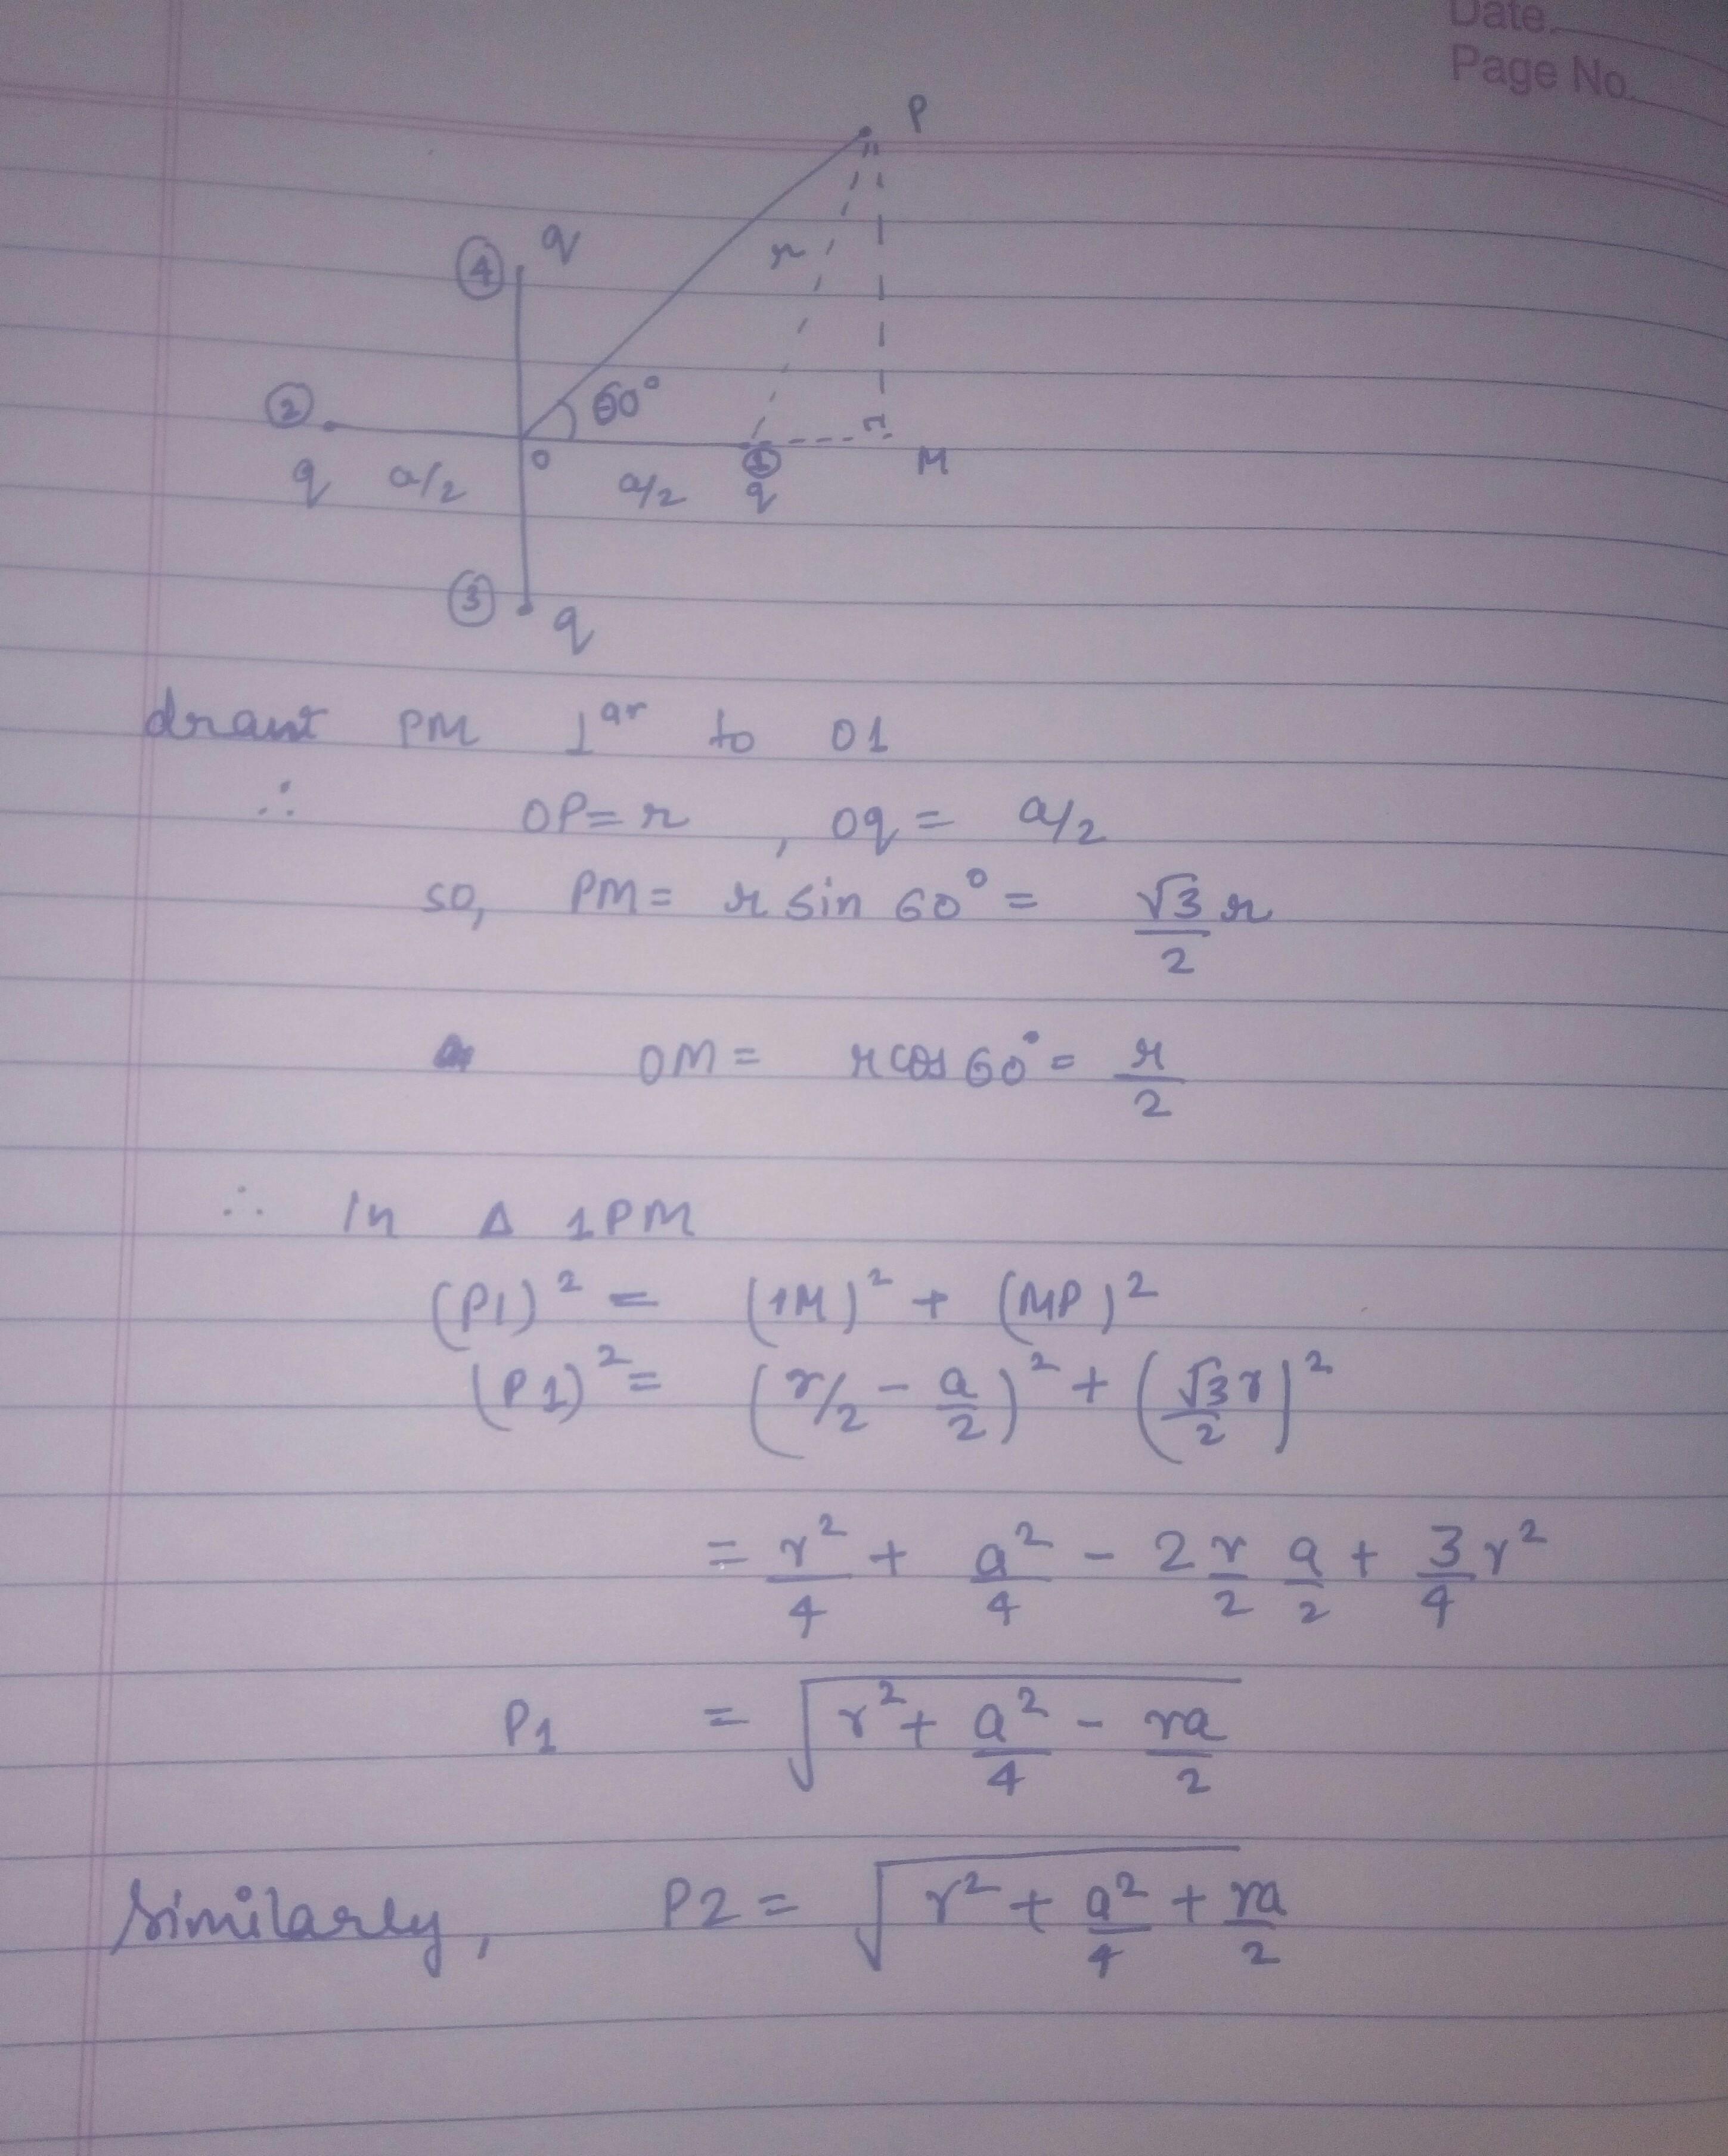 Date.
Page No.
P
④ q
r
60°
②
O
M
q a/2 a/2 ① q
③ q
draw PM ⊥ar to O1
∴ OP = r , Oq = a/2
so, PM = r sin 60° = √3/2 r
OM = r cos 60° = r/2
∴ In Δ 1PM
(P1)² = (1M)² + (MP)²
(P1)² = (r/2 - a/2)² + (√3r/2)²
= r²/4 + a²/4 - 2 r/2 a/2 + 3/4 r²
P1 = √(r² + a²/4 - ra/2)
Similarly, P2 = √(r² + a²/4 + ra/2)